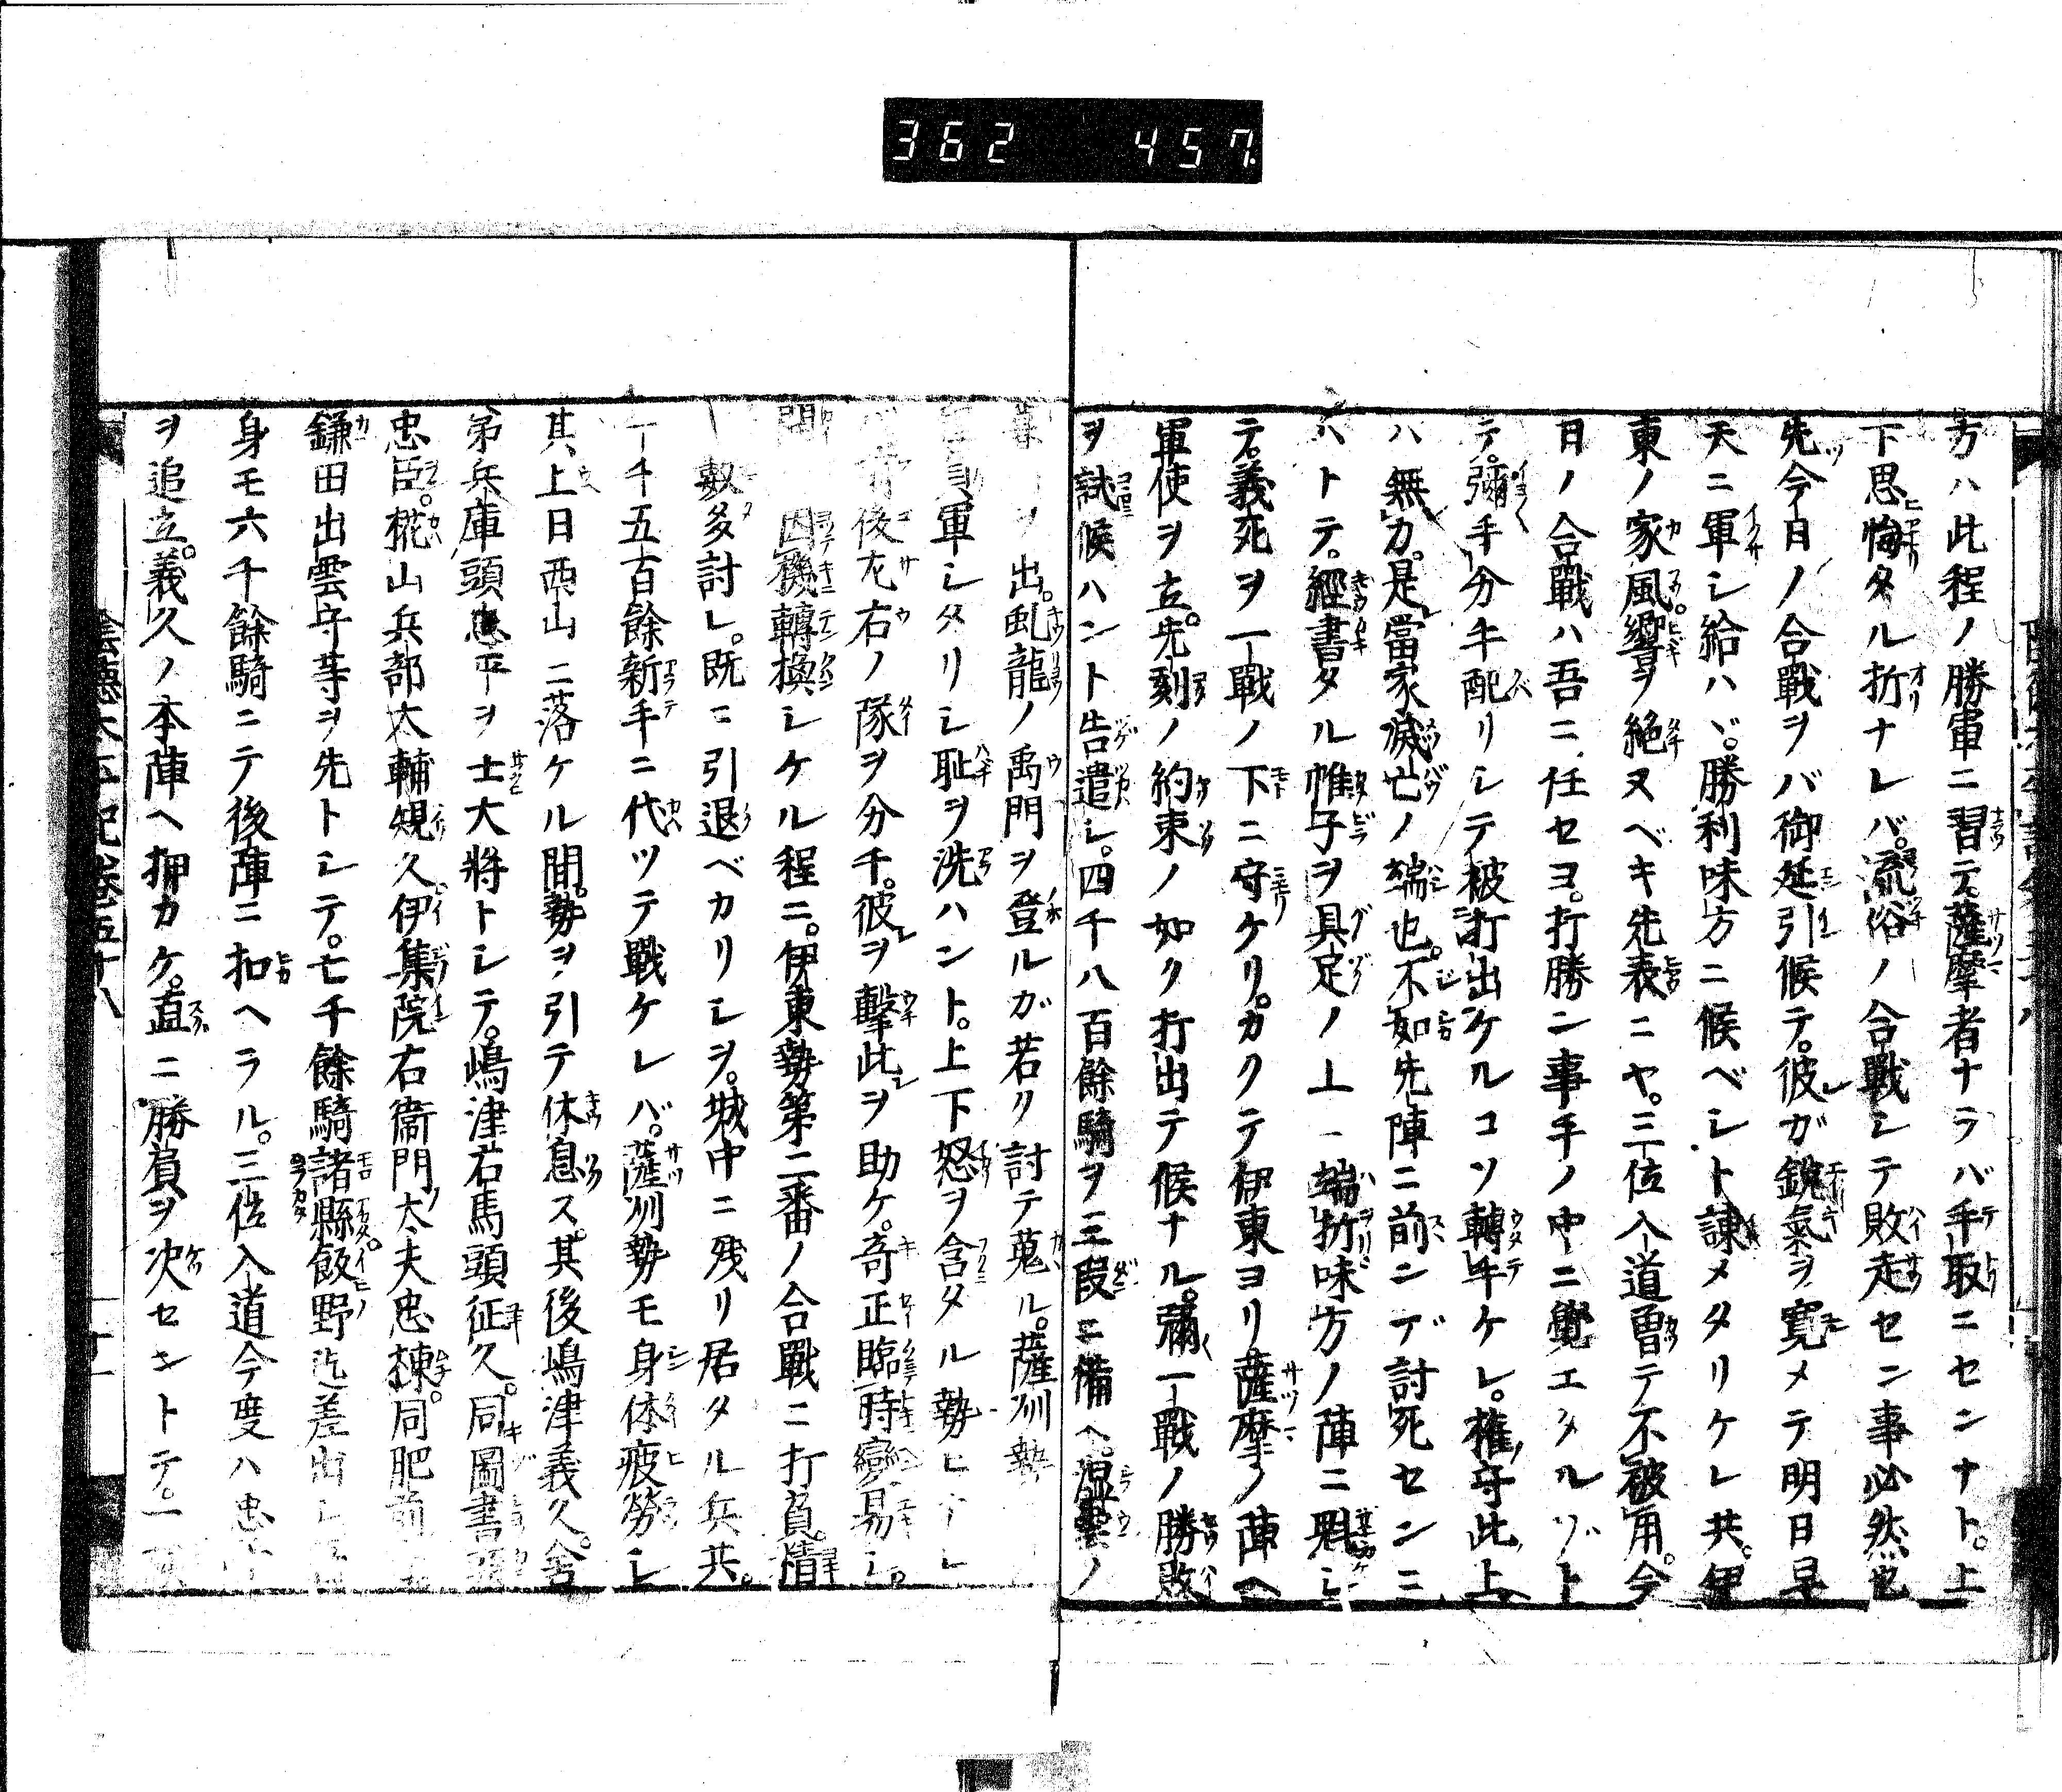 362 457
方ハ此程ノ勝軍ニ習テ。薩摩者ナラバ手取ニセンナト。上
下思悔タル折ナレバ。流俗ノ合戰シテ敗走セン事必然也
先今日ノ合戰ヲバ御延引候テ。彼ガ鋭氣ヲ寛メテ明日早
天ニ軍シ給ハヾ。勝利味方ニ候ベシト諫メタリケレ共。伊
東ノ家風響ノ絶ヌベキ先表ニヤ。三位入道曽テ不被用。今
日ノ合戰ハ吾ニ任セヨ。打勝ン事手ノ中ニ覺エタルゾト
テ。彌手分手配リシテ被打出ケルコソ轉手ケレ。權守此上
ハ無力。是當家滅亡ノ端也。不如先陣ニ前ンデ討死センニ
ハトテ。經書タル帷子ヲ具足ノ上ニ端折味方ノ陣ニ魁シ
テ。義死ヲ一戰ノ下ニ守ケリ。カクテ伊東ヨリ薩摩ノ陣ヘ
軍使ヲ立。先刻ノ約束ノ如ク打出テ候ナル。彌一戰ノ勝敗
ヲ試候ハント告遣シ。四千八百餘騎ヲ三段ニ備ヘ。湿雲ノ
ヲ出。虬龍ノ禹門ヲ登ルガ若ク討テ蒐ル。薩刕勢
負軍シタリシ恥ヲ洗ハント。上下怒ヲ含タル勢ヒ
前後左右ノ隊ヲ分チ。彼ヲ擊此ヲ助ケ。奇正臨時變易シ。
因機轉換シケル程ニ。伊東勢第二番ノ合戰ニ打負。精
數多討レ。既ニ引退ベカリシヲ。城中ニ残リ居タル兵共。
一千五百餘新手ニ代ツテ戰ケレバ。薩刕勢モ身体疲勞シ
其上日西山ニ落ケル間。勢ヲ引テ休息ス。其後嶋津義久。舍
弟兵庫頭忠平ヲ士大將トシテ。嶋津右馬頭征久。同圖書頭
忠臣。椛山兵部太輔規久伊集院右衞門太夫忠棟。同肥前
鎌田出雲守等ヲ先トシテ。七千餘騎諸縣。飯野迄差出シ
身モ六千餘騎ニテ後陣ニ扣ヘラル。三位入道今度ハ忠
ヲ追立。義久ノ本陣ヘ押カケ。直ニ勝負ヲ决セントテ。一
陰德太平記卷五十八
十一